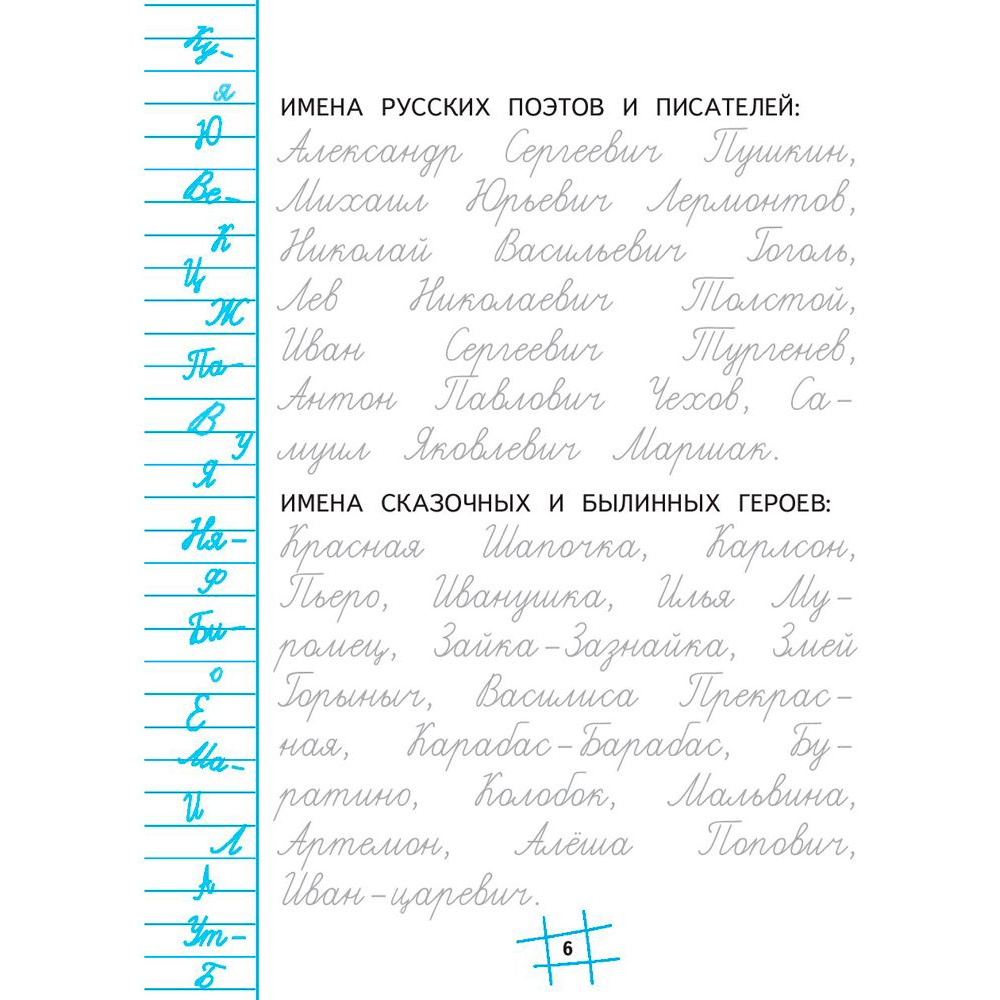 Ку-
я
Ю
Ве-
К
Ц
Ж
Па-
В
У
Я
Ня-
Ф
Би-
о
Е
Ма-
И
Л
А
Ут-
Б
ИМЕНА РУССКИХ ПОЭТОВ И ПИСАТЕЛЕЙ:
Александр Сергеевич Пушкин,
Михаил Юрьевич Лермонтов,
Николай Васильевич Гоголь,
Лев Николаевич Толстой,
Иван Сергеевич Тургенев,
Антон Павлович Чехов, Са-
муил Яковлевич Маршак.
ИМЕНА СКАЗОЧНЫХ И БЫЛИННЫХ ГЕРОЕВ:
Красная Шапочка, Карлсон,
Пьеро, Иванушка, Илья Му-
ромец, Зайка-Зазнайка, Змей
Горыныч, Василиса Прекрас-
ная, Карабас-Барабас, Бу-
ратино, Колобок, Мальвина,
Артемон, Алёша Попович,
Иван-царевич.
6